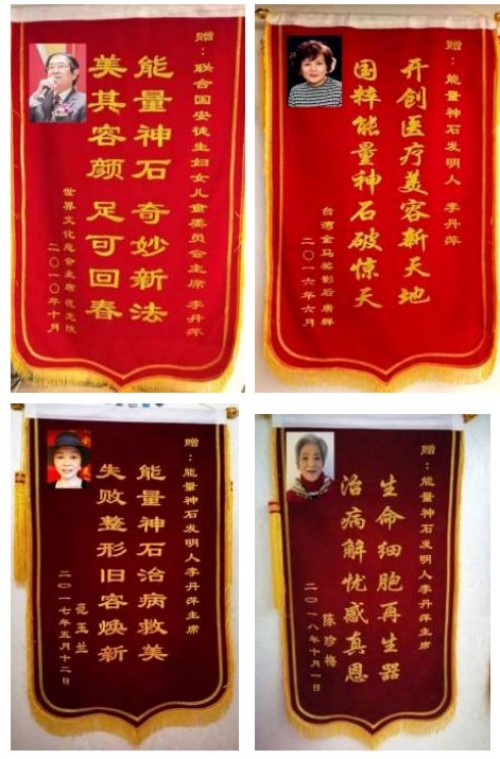 赠：联合国安徒生妇女儿童委员会主席 李丹萍
能量神石 奇妙新法
美其容颜 足可回春
世界文化总会主席范光陵
二〇一〇年十月
赠：能量神石发明人 李丹萍
开创医疗美容新天地
国粹能量神石破惊天
台湾金马奖影后唐群
二〇一六年六月
赠：能量神石发明人李丹萍主席
能量神石治病救美
失败整形旧容焕新
玉兰
二〇一七年五月十二日
赠：能量神石发明人李丹萍主席
生命细胞再生器
治病解忧感真恩
陈珍梅
二〇一八年十月一日